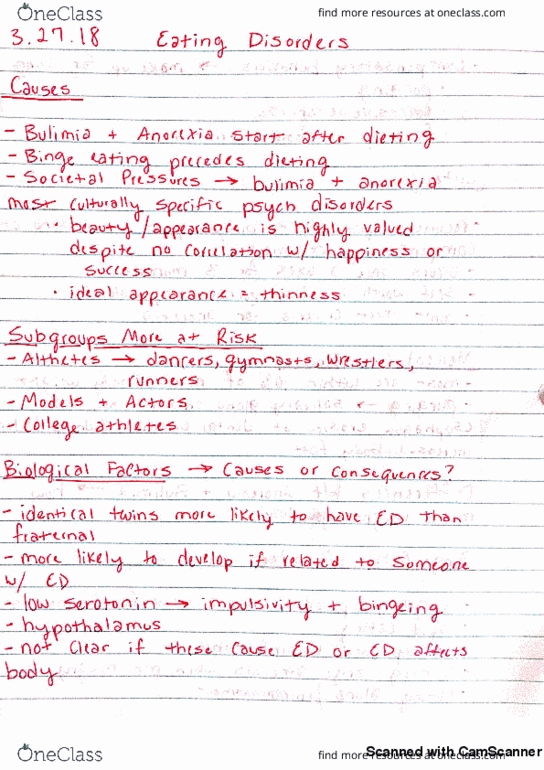 OneClass
find more resources at oneclass.com
3.27.18 Eating Disorders
Causes
- Bulimia + Anorexia start after dieting
- Binge eating precedes dieting
- Societal Pressures → bulimia + anorexia
most culturally specific psych disorders
· beauty/appearance is highly valued
despite no correlation w/ happiness or
success
· ideal appearance = thinness
Subgroups More at Risk
- Althetes → dancers, gymnasts, wrestlers,
runners
- Models + Actors
- College athletes
Biological Factors → Causes or Consequences?
- identical twins more likely to have ED than
fraternal
- more likely to develop if related to someone
w/ ED
- low serotonin → impulsivity + bingeing
- hypothalamus
- not clear if these cause ED or ED affects
body
OneClass
find more resources at oneclass.com
Scanned with CamScanner